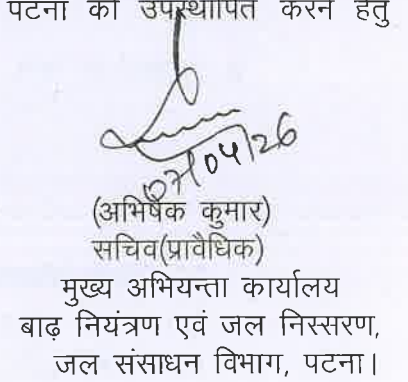 पटना को उपस्थापित करने हेतु
07/04/26
(अभिषेक कुमार)
सचिव(प्रावैधिक)
मुख्य अभियन्ता कार्यालय
बाढ़ नियंत्रण एवं जल निस्सरण,
जल संसाधन विभाग, पटना।